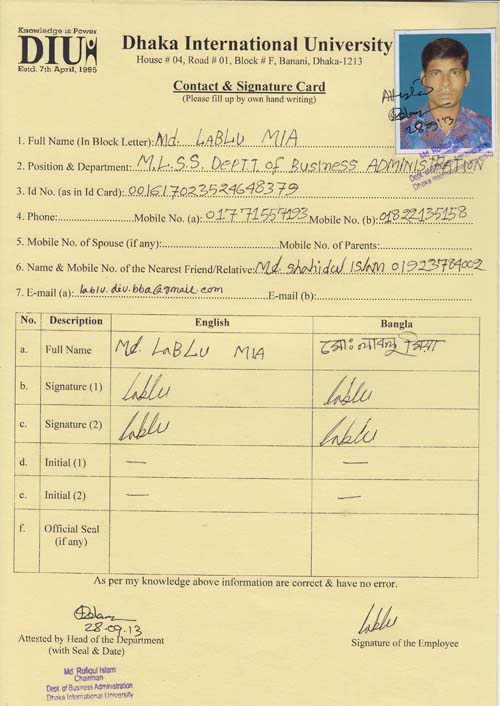 Knowledge is Power
DIU
Estd. 7th April, 1995
Dhaka International University
House # 04, Road # 01, Block # F, Banani, Dhaka-1213
Contact & Signature Card
(Please fill up by own hand writing)
Attested
28-09-13
Md. Rofiqul Islam
Dept. of Business Administration
Dhaka International University
1. Full Name (In Block Letter): Md. LABLU MIA
2. Position & Department: M.L.S.S. DEPTT of BUSINESS ADMINISTRATION
3. Id No. (as in Id Card): 001617023524648379
4. Phone: Mobile No. (a): 01771557193 Mobile No. (b): 01822135158
5. Mobile No. of Spouse (if any): Mobile No. of Parents:
6. Name & Mobile No. of the Nearest Friend/Relative: Md. Shahidul Islam 01923784002
7. E-mail (a): lablu.diu.bba@gmail.com E-mail (b):
No. Description English Bangla
a. Full Name Md. LABLU MIA মোঃ লাবলু মিয়া
b. Signature (1) Lablu Lablu
c. Signature (2) Lablu Lablu
d. Initial (1) — —
e. Initial (2) — —
f. Official Seal
(if any)
As per my knowledge above information are correct & have no error.
28-09-13
Lablu
Attested by Head of the Department
(with Seal & Date)
Signature of the Employee
Md. Rofiqul Islam
Chairman
Dept. of Business Administration
Dhaka International University